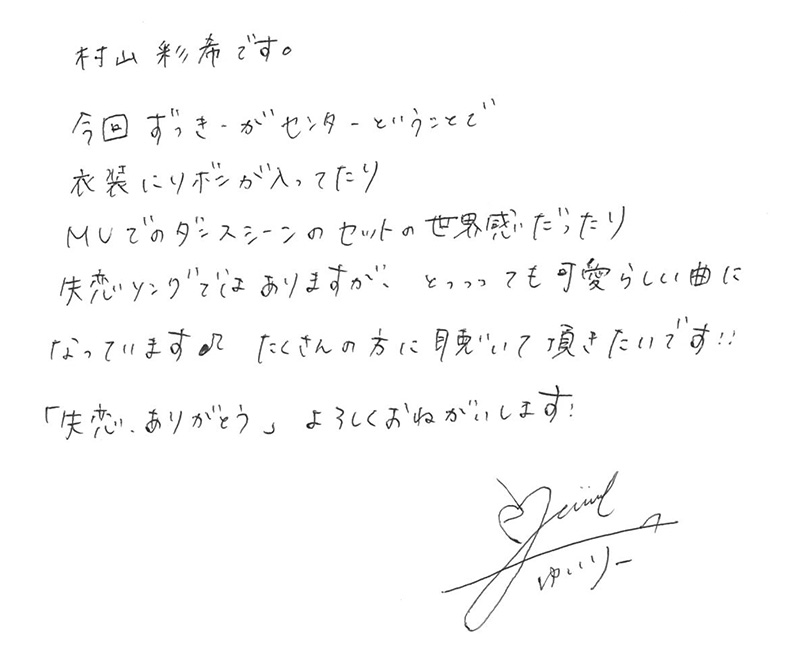 村山彩希です。
今回ずっきーがセンターということで
衣装にリボンが入ってたり
MVでのダンスシーンのセットの世界感だったり
失恋ソングではありますが、とっっっても可愛らしい曲に
なっています♪ たくさんの方に聴いて頂きたいです!!
「失恋、ありがとう」よろしくおねがいします!
ゆいりー